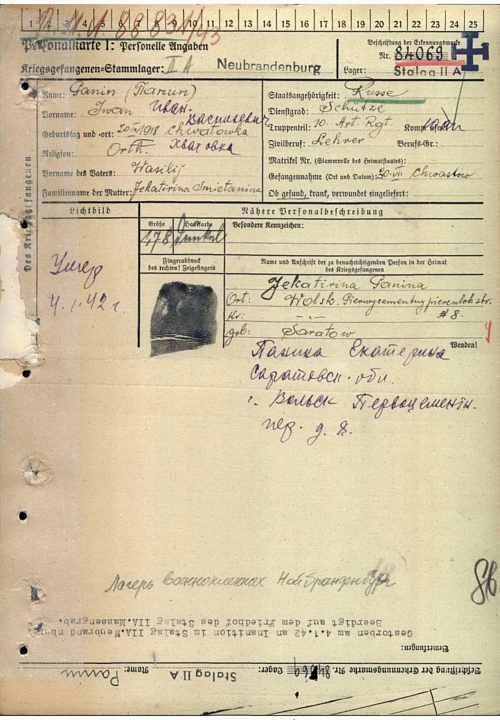 1 2 3 4 5 6 7 8 9 10 11 12 13 14 15 16 17 18 19 20 21 22 23 24 25
Personalkarte I: Personelle Angaben
Kriegsgefangenen-Stammlager: II A Neubrandenburg
Beschriftung der Erkennungsmarke
Nr. 84069
Lager: Stalag II A
Des Kriegsgefangenen
Name: Panin (Панин)
Vorname: Iwan Иван Васильевич
Geburtstag und -ort: 1918 Chwatowka
Хватовка
Religion: Orth.
Vorname des Vaters: Wasilij
Familienname der Mutter: Jekatirina Smietanina
Staatsangehörigkeit: Russe
Dienstgrad: Schütze
Truppenteil: 10. Art. Rgt. Komp. usw.:
Zivilberuf: Lehrer Berufs-Gr.:
Matrikel Nr. (Stammrolle des Heimatstaates):
Gefangennahme (Ort und Datum): Chwastow
Ob gesund, krank, verwundet eingeliefert:
Lichtbild
Nähere Personalbeschreibung
Größe Haarfarbe Besondere Kennzeichen:
178 Dunkel
Fingerabdruck
des rechten! Zeigefingers
Name und Anschrift der zu benachrichtigenden Person in der Heimat
des Kriegsgefangenen
Умер
4.1.42 г.
Jekatirina Panina
Ort: Wolsk.
# 8.
Saratow
Wenden!
Панина Екатерина
Саратовск. обл.
г. Вольск Первоцементн.
пер. д. 8.
Лагерь военнопленных Нойбранденбург
86
Gestorben am 4.1.42 an Inanition im Stalag IIA.
Beerdigt auf dem Friedhof des Stalag IIA. Massengrab.
Bemerkungen:
Beschriftung der Erkennungsmarke Nr. 84069 Lager: Stalag II A Name: Panin